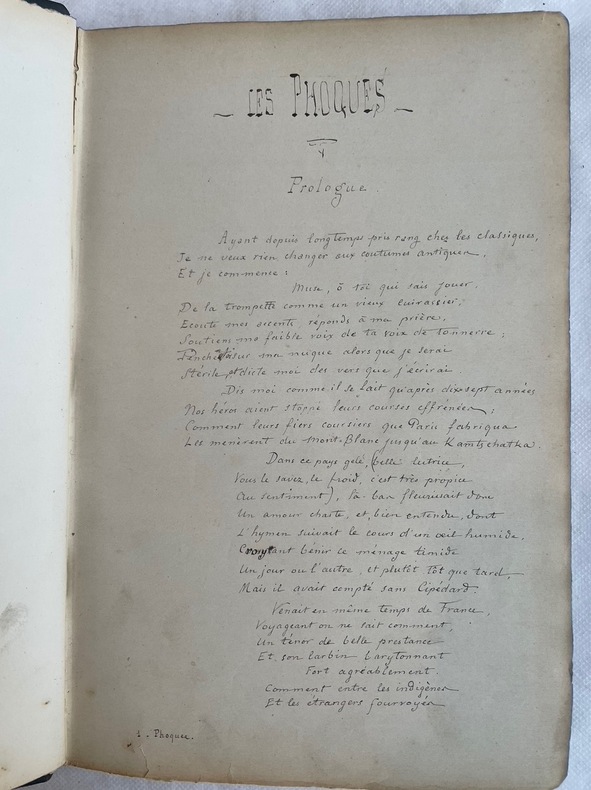 - LES PHOQUES -
Prologue.
Ayant depuis longtemps pris rang chez les classiques,
Je ne veux rien changer aux coutumes antiques,
Et je commence :
Muse, ô toi qui sais jouer
De la trompette comme un vieux cuirassier,
Ecoute mes accents, réponds à ma prière,
Soutien ma faible voix de ta voix de tonnerre ;
Penche toi sur ma nuque alors que je serai
Stérile et dicte moi des vers que j'écrirai
Dis moi comme il se fait qu'après dix-sept années
Nos héros aient stoppé leurs courses effrénées ;
Comment leurs fiers coursiers que Paris fabriqua
Les menèrent du Mont-Blanc jusqu'au Kamtschatka.
Dans ce pays gelé, (belle lectrice,
Vous le savez, le froid, c'est très propice
Au sentiment), là-bas fleurissait donc
Un amour chaste, et, bien entendu, dont
L'hymen suivait le cours d'un œil humide,
Croyant bénir le ménage timide
Un jour ou l'autre, et plutôt tôt que tard,
Mais il avait compté sans Cipédard.
Venait en même temps de France,
Voyageant on ne sait comment,
Un ténor de belle prestance
Et son larbin barytonnant
Fort agréablement.
Comment entre les indigènes
Et les étrangers fourvoyés
1 - Phoques.